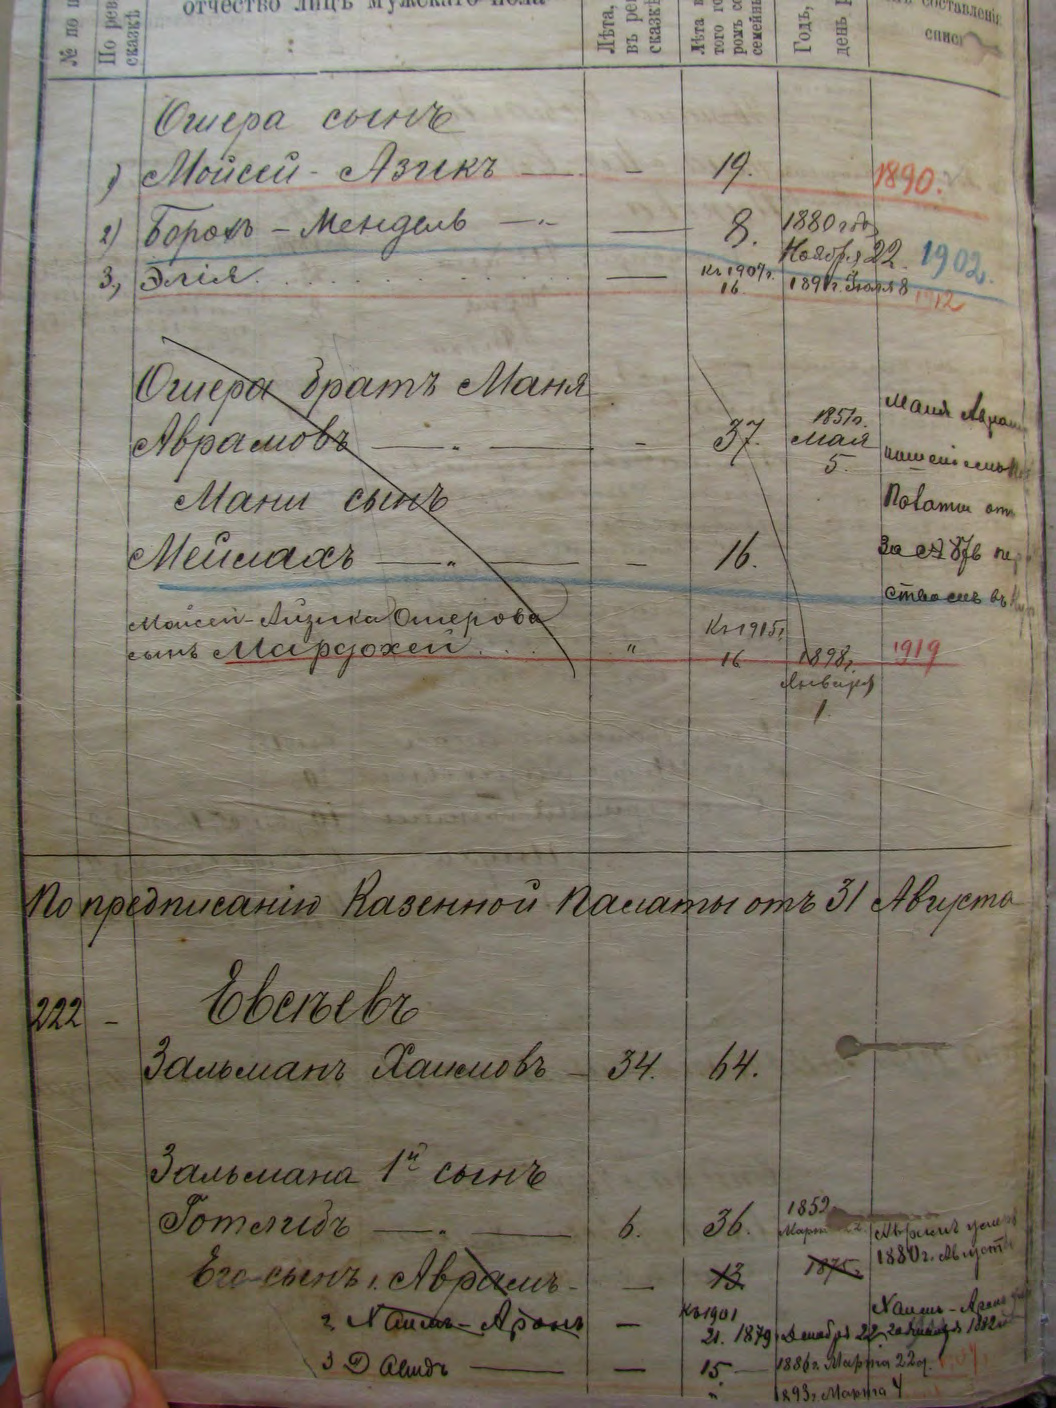 № по
По рев. сказкѣ
отчество лицъ мужскаго пола
Лѣта, въ рев. сказкѣ
Лѣта того ромъ семейн
Годъ, день
составленія
списк
Ошера сынъ
1) Мойсей - Азикъ — - 19. 1890.
2) Борохъ - Мендель — — 8. 1880 года Ноября 22. 1902.
3, Элія — Къ 1907г. 16. 1891г. Іюля 8 1912
Ошера братъ Маня
Аврамовъ — - 37. 1851г. Мая 5.
Мани сынъ
Мейлахъ — - 16.
Маня
Палаты отъ
за №
Мойсей-Айзика Ошерова
сынъ Мардохей " Къ 1915г 16 1898г. Января 1. 1919
По предписанію Казенной Палаты отъ 31 Августа
222 - Евсѣевъ
Зальманъ Хаимовъ - 34. 64.
Зальмана 1й сынъ
Готлибъ — 6. 36. 1852 Март
Его сынъ 1. Аврамъ - — 13 1875г.
1880г. Августа
2, Хаимъ - Аронъ — Къ 1901 21. 1879г. Декабря 22
Хаимъ - Аронъ
3 Давидъ — — 15 1886г. Марта 22д.
" 1893г. Марта 4